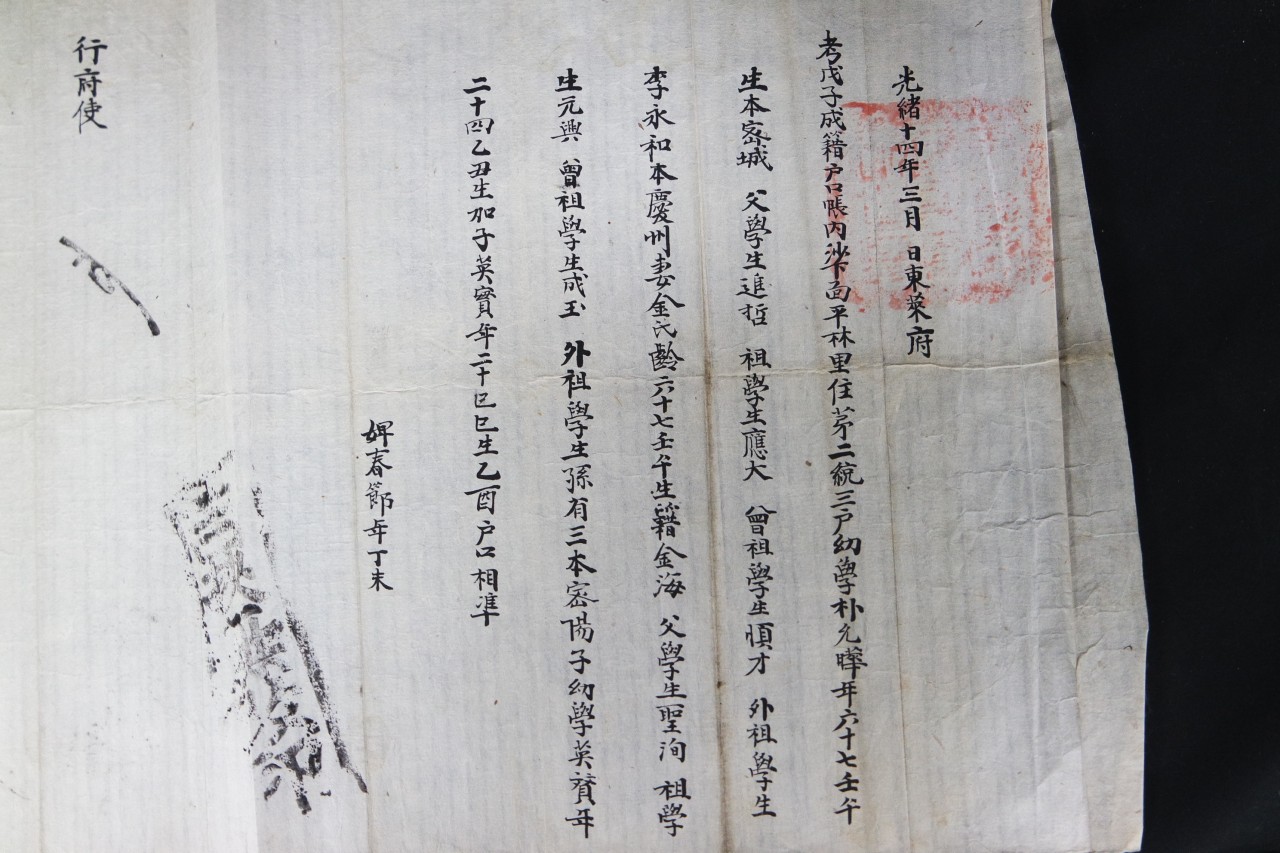 光緖十四年三月 日東萊府
考戊子成籍戶口帳內沙下面平林里住苐二統三戶幼學朴允曄年六十七壬午
生本密城 父學生進哲 祖學生應大 曾祖學生順才 外祖學生
李永和本慶州妻金氏齡六十七壬午生籍金海 父學生聖洵 祖學
生元興 曾祖學生成玉 外祖學生孫有三本密陽子幼學英贊年
二十四乙丑生加子英實年二十巳巳生乙酉戶口相凖
婢春節年丁未
行府使